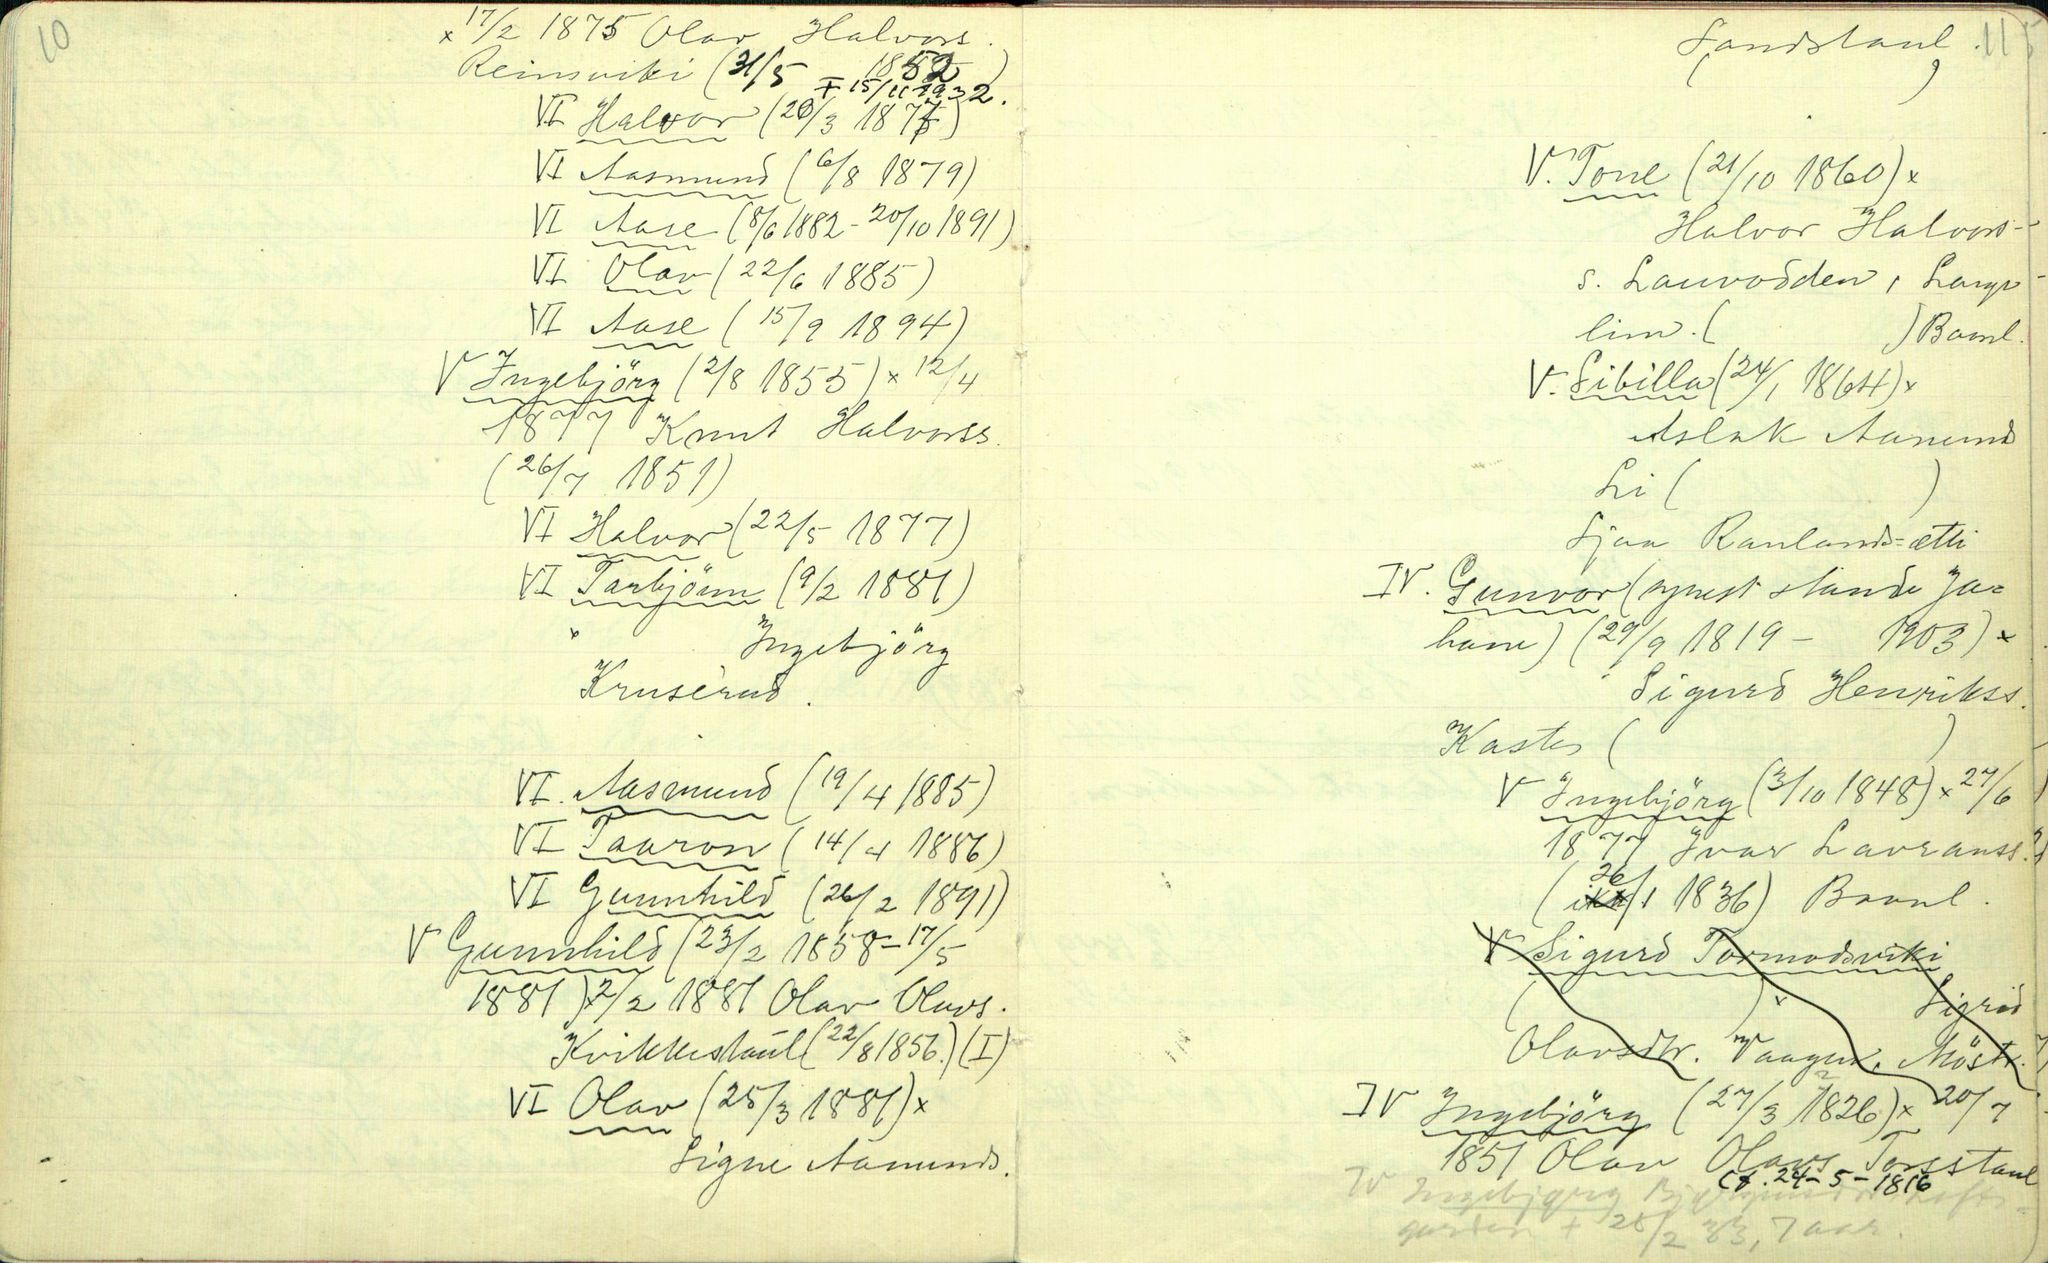 10
× 17/2 1875 Olav Halvors.
Reinsviki (31/5 1852)
+ 15/11 1932.
VI Halvor (20/3 1877)
VI Aasmund (6/8 1879)
VI Aase (8/6 1882 - 20/10 1891)
VI Olav (22/6 1885)
VI Aase (15/9 1894)
V Ingebjörg (2/8 1855) × 12/4
1877 Knut Halvorss.
(26/7 1851)
VI Halvor (22/5 1877)
VI Tarbjönn (9/2 1881)
× Ingebjörg
Kruserud.
VI. Aasmund (19/4 1885)
VI Taaron (14/4 1886)
VI Gunnhild (26/2 1891)
V Gunnhild (23/2 1858 - 17/5
1881) × 2/2 1881 Olav Olavs.
Kvikkestaul (22/8 1856.) (I)
VI Olav (25/3 1881) ×
Signe Aamunds.
11
Sandstaul.
( )
V. Tone (21/10 1860) ×
Halvor Halvors-
s. Lauvodden, Lange-
lim. ( ) Baml.
V. Sibilla (24/1 1864) ×
Aslak Aanund
Li ( )
Sjaa Raulands=ætti
IV. Gunvor (nynest stande Jo=
hane) (29/9 1819 - 1903) ×
Sigurd Henrikss.
Kasten ( )
V Ingebjörg (3/10 1848) × 27/6
1877 Ivar Lavranss.
(26/1 1836) Baml.
V Sigurd Tormodsviki
( ) × Sigrid
Olavsdtr. Vaagen, Möstr.
IV Ingebjörg (27/3 1826) × 20/7
1851 Olav Olavs Torsstaul
(f. 24-5-1816
IV Ingebjørg
garden + 28/2 33, 7 aar.